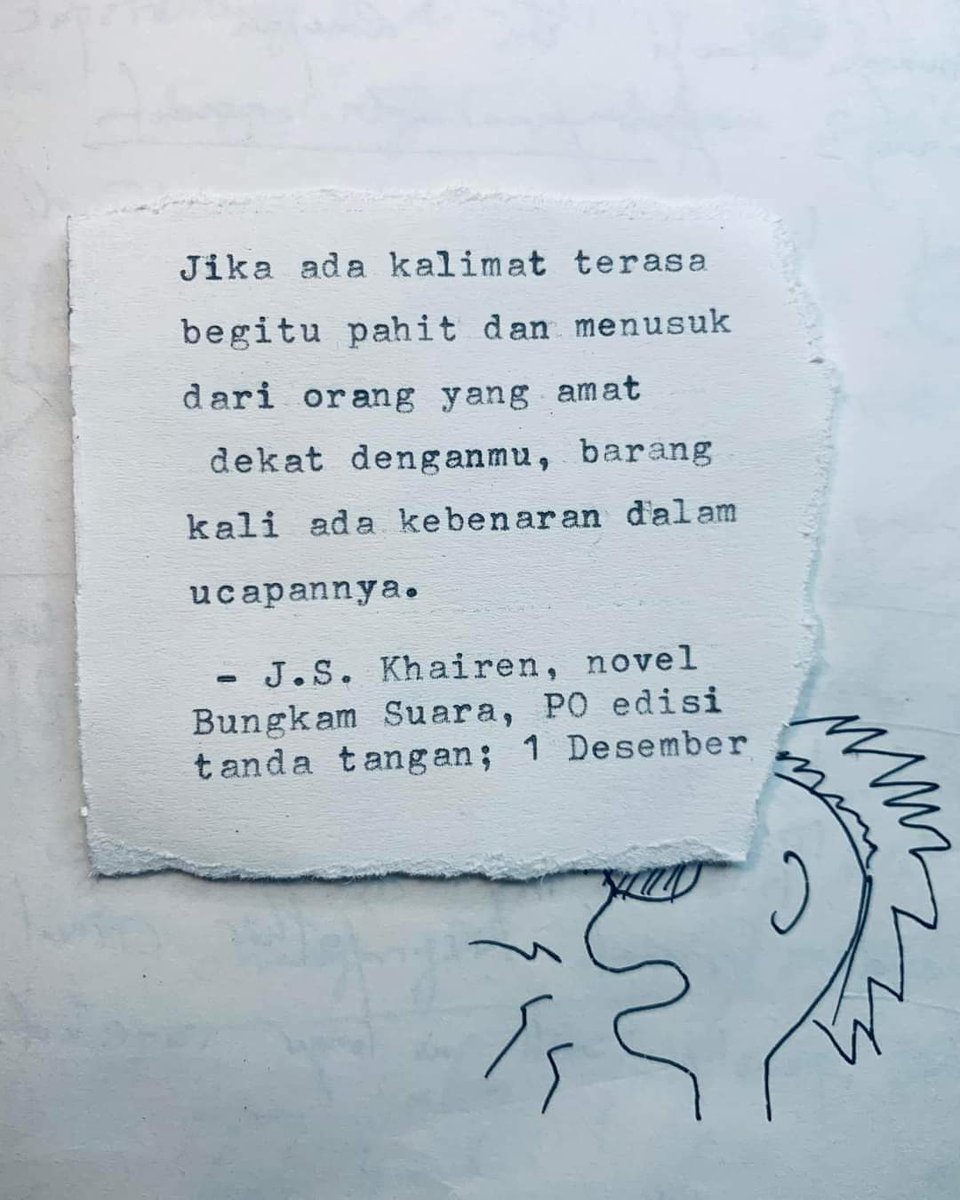 Jika ada kalimat terasa
begitu pahit dan menusuk
dari orang yang amat
dekat denganmu, barang
kali ada kebenaran dalam
ucapannya.
- J.S. Khairen, novel
Bungkam Suara, PO edisi
tanda tangan; 1 Desember